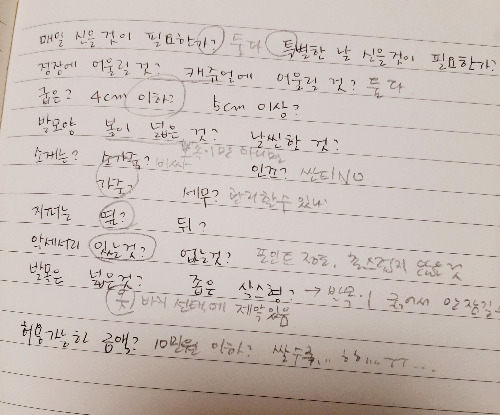 매일 신을것이 필요한가? 둘다 특별한 날 신을것이 필요한가?
정장에 어울릴 것? 캐쥬얼에 어울릴 것? 둘다
굽은? 4cm 이하? 5cm 이상?
발모양 볼이 넓은 것? 날씬한 것?
소재는? 소가죽? 비싸 인조? 싼티 NO
가죽? 세무? 관리할수 있나
지퍼는 옆? 뒤?
악세서리 있는것? 없는것? 포인트 정도,
발목은 넓은것? 좁은 삭스형? →
바지 선택에 제약있음
허용가능한 금액? 10만원 이하? 쌀수록..